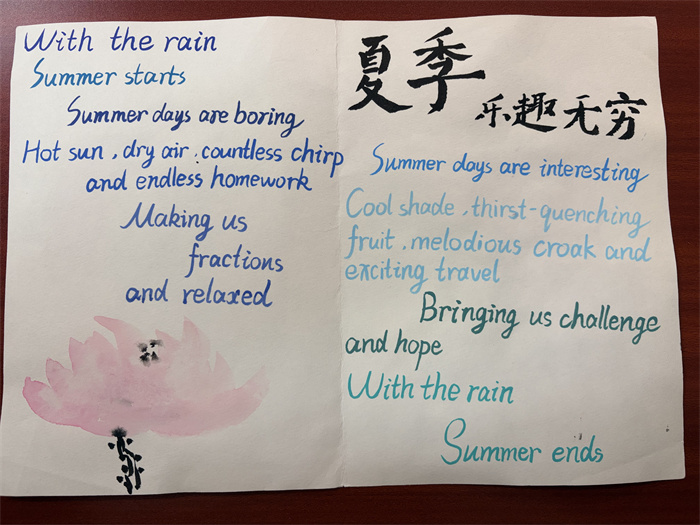 With the rain
Summer starts
Summer days are boring
Hot sun , dry air . countless chirp
and endless homework
Making us
fractions
and relaxed
夏季
乐趣无穷
Summer days are interesting
Cool shade , thirst-quenching
fruit , melodious croak and
exciting travel
Bringing us challenge
and hope
With the rain
Summer ends